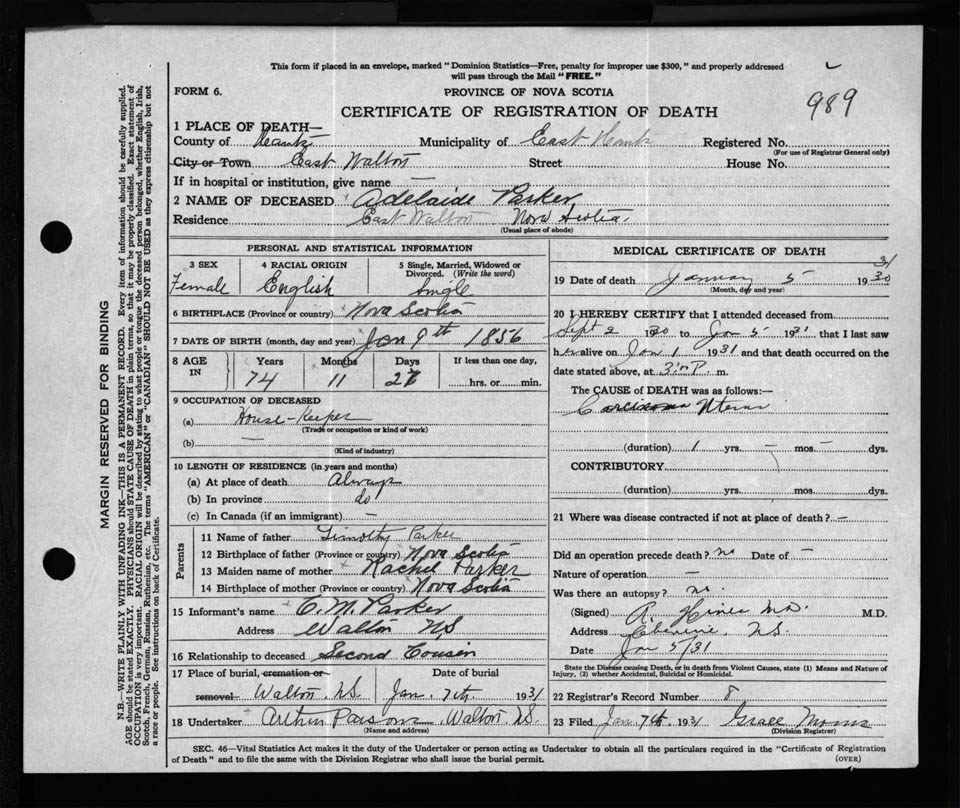 This form if placed in an envelope, marked "Dominion Statistics—Free, penalty for improper use $300," and properly addressed
will pass through the Mail "FREE."
989
FORM 6.
PROVINCE OF NOVA SCOTIA
CERTIFICATE OF REGISTRATION OF DEATH
1 PLACE OF DEATH—
County of Hants Municipality of East Hants Registered No.
(For use of Registrar General only)
City or Town East Walton Street House No.
If in hospital or institution, give name —
2 NAME OF DECEASED Adelaide Parker
Residence East Walton Nova Scotia
(Usual place of abode)
PERSONAL AND STATISTICAL INFORMATION
3 SEX 4 RACIAL ORIGIN 5 Single, Married, Widowed or
Divorced. (Write the word)
Female English Single
6 BIRTHPLACE (Province or country) Nova Scotia
7 DATE OF BIRTH (month, day and year) Jan 9th 1856
8 AGE IN Years Months Days If less than one day,
74 11 27 hrs. or min.
9 OCCUPATION OF DECEASED
(a) House-Keeper
(Trade or occupation or kind of work)
(b) —
(Kind of industry)
10 LENGTH OF RESIDENCE (in years and months)
(a) At place of death Always
(b) In province do
(c) In Canada (if an immigrant) —
Parents
11 Name of father Timothy Parker
12 Birthplace of father (Province or country) Nova Scotia
13 Maiden name of mother Rachel Parker
14 Birthplace of mother (Province or country) Nova Scotia
15 Informant's name C. M. Parker
Address Walton NS
16 Relationship to deceased Second Cousin
17 Place of burial, cremation or Date of burial
removal Walton. N.S. Jan. 7th. 1931
18 Undertaker Arthur Parsons, Walton N.S.
(Name and address)
MEDICAL CERTIFICATE OF DEATH
31
19 Date of death January 5 1930
(Month, day and year)
20 I HEREBY CERTIFY that I attended deceased from
Sept 2 1930 to Jan 5 1931 that I last saw
her alive on Jan 1 1931 and that death occurred on the
date stated above, at 3 P. m.
The CAUSE OF DEATH was as follows:—
Carcinoma Uterus
(duration) 1 yrs. — mos. — dys.
CONTRIBUTORY
(duration) yrs. mos. dys.
21 Where was disease contracted if not at place of death? —
Did an operation precede death? no Date of —
Nature of operation —
Was there an autopsy? no.
(Signed) A. M.D. M.D.
Address N.S.
Date Jan 5/31
State the Disease causing Death, or in death from Violent Causes, state (1) Means and Nature of
Injury, (2) whether Accidental, Suicidal or Homicidal.
22 Registrar's Record Number 8
23 Filed Jan 7th. 1931 Grace
(Division Registrar)
SEC. 46—Vital Statistics Act makes it the duty of the Undertaker or person acting as Undertaker to obtain all the particulars required in the "Certificate of Registration
of Death" and to file the same with the Division Registrar who shall issue the burial permit.
(OVER)
MARGIN RESERVED FOR BINDING
N.B.—WRITE PLAINLY WITH UNFADING INK—THIS IS A PERMANENT RECORD. Every item of information should be carefully supplied.
AGE should be stated EXACTLY. PHYSICIANS should STATE CAUSE OF DEATH in plain terms, so that it may be properly classified. Exact statement of
OCCUPATION is very important. RACIAL ORIGIN will be described by stating to what people or tongue the deceased person belonged, whether English, Irish,
Scotch, French, German, Russian, Ruthenian, etc. The terms "AMERICAN" or "CANADIAN" SHOULD NOT BE USED as they express citizenship but not
a race or people. See instructions on back of Certificate.